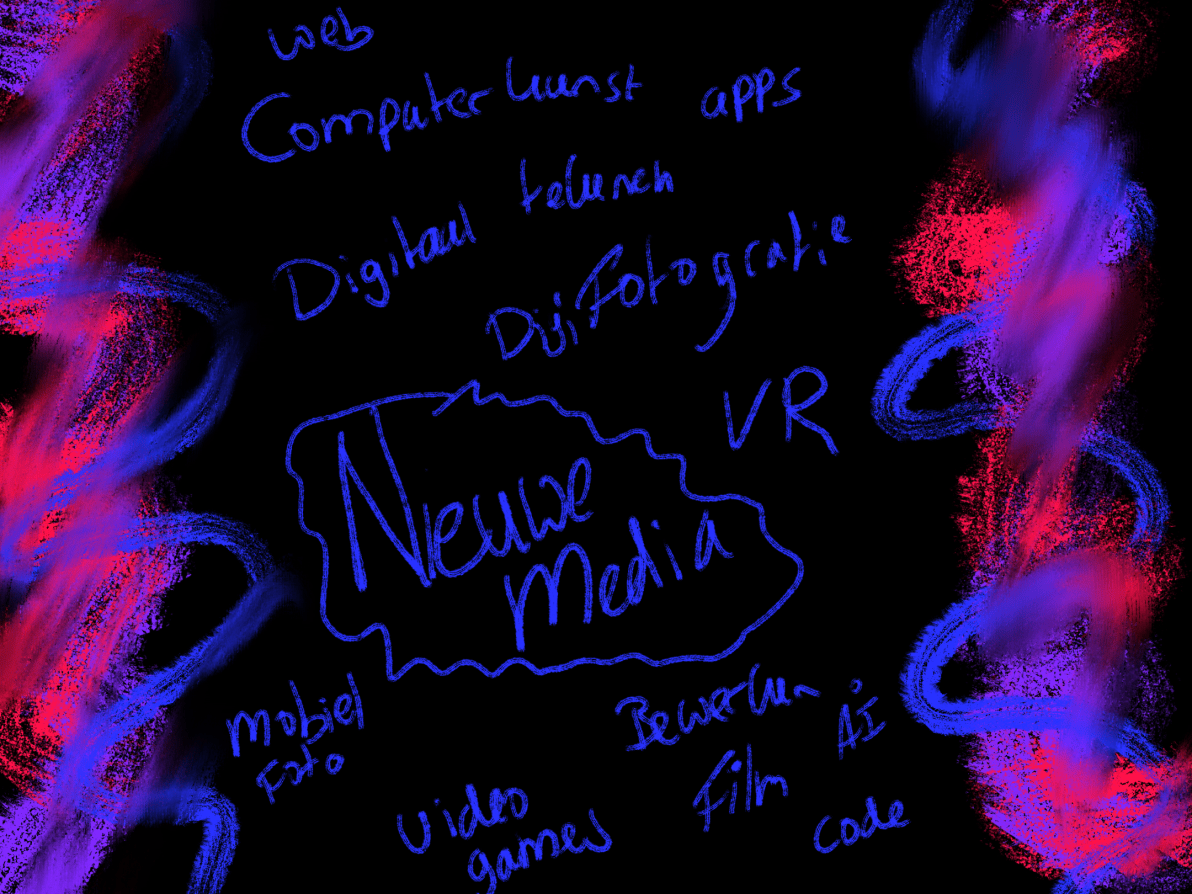 web
Computerkunst
apps
Digitaal tekenen
Digi Fotografie
VR
Nieuwe
Media
Mobiel
Foto
Bewerken
AI
Film
Video
games
code